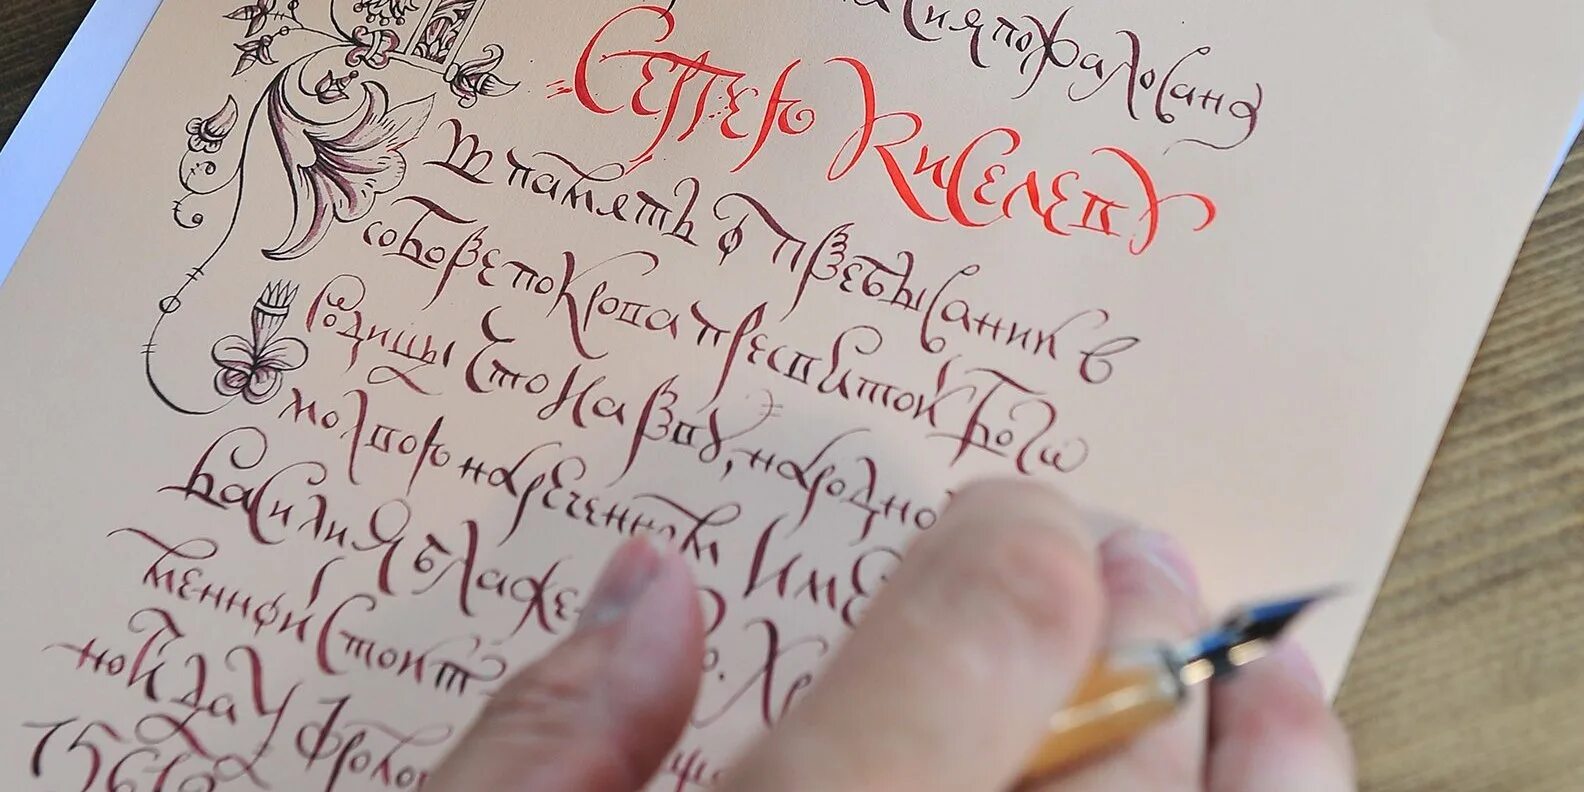 сия пожалована
Сергею Киселеву
в память о пребывании в
соборе покрова пресвятой Бого
родицы что на рву, народно
молвою нареченном Име
василия блаже Хр
менной
ной Фроло